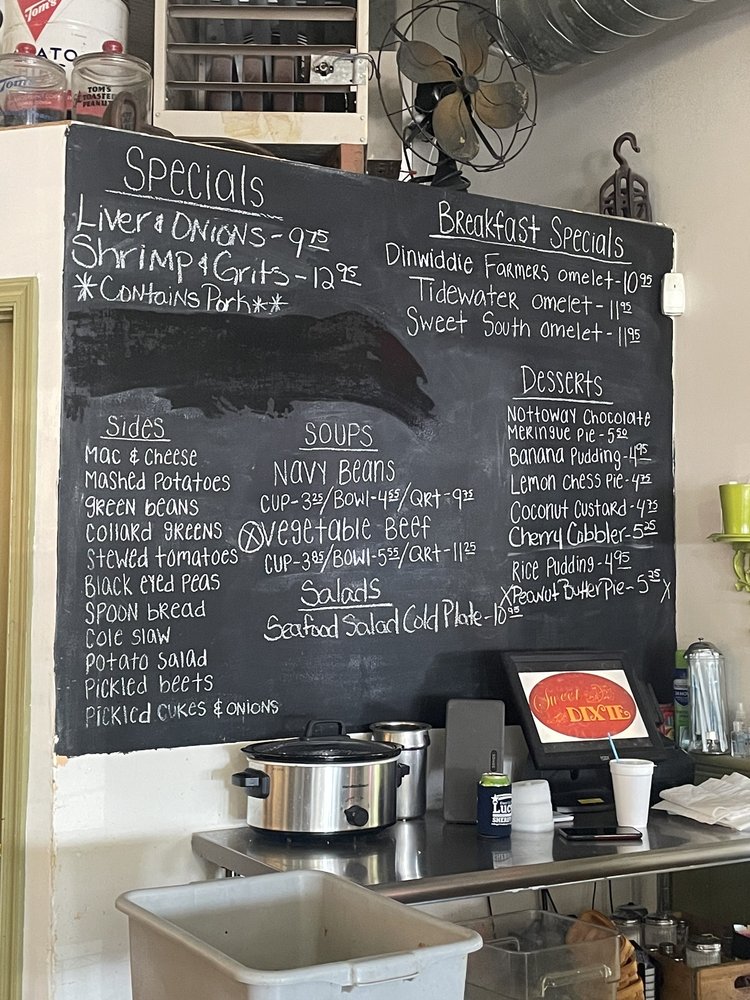 Tom's
TOM'S
TOASTED
PEANUTS
Specials
Liver & Onions - 9 75
Shrimp & Grits - 12 95
*Contains Pork**
Breakfast Specials
Dinwiddie Farmers omelet - 10 95
Tidewater omelet - 11 95
Sweet South omelet - 11 95
Sides
Mac & Cheese
Mashed Potatoes
green beans
collard greens
Stewed tomatoes
Black eyed peas
Spoon bread
Cole slaw
potato salad
Pickled beets
Pickled cukes & onions
SOUPS
Navy Beans
CUP-3 25/Bowl-4 55/QRT-9 75
X Vegetable Beef
CUP-3 85/Bowl-5 55/QRT-11 25
Salads
Seafood Salad Cold Plate-10 95
Desserts
Nottoway Chocolate
Meringue Pie-5 50
Banana Pudding-4 95
Lemon Chess Pie-4 75
Coconut Custard-4 75
Cherry Cobbler-5 25
Rice Pudding-4 95
X Peanut Butter Pie-5 25 X
Sweet
DIXIE